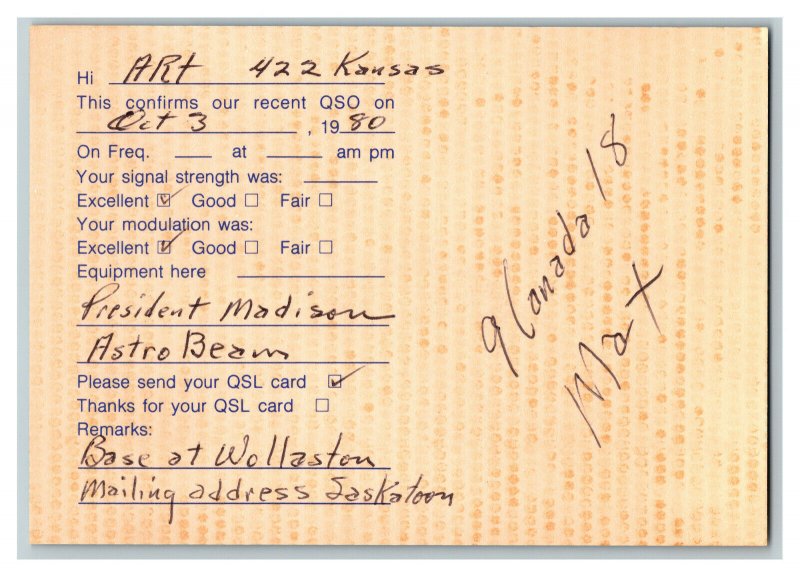 Hi ARt 422 Kansas
This confirms our recent QSO on
Oct 3 , 1980
On Freq. ___ at ___ am pm
Your signal strength was: ___
Excellent ☑ Good ☐ Fair ☐
Your modulation was:
Excellent ☑ Good ☐ Fair ☐
Equipment here
President Madison
Astro Beam
Please send your QSL card ☑
Thanks for your QSL card ☐
Remarks:
Base at Wollaston
Mailing address Saskatoon
9 Canada 18
Max